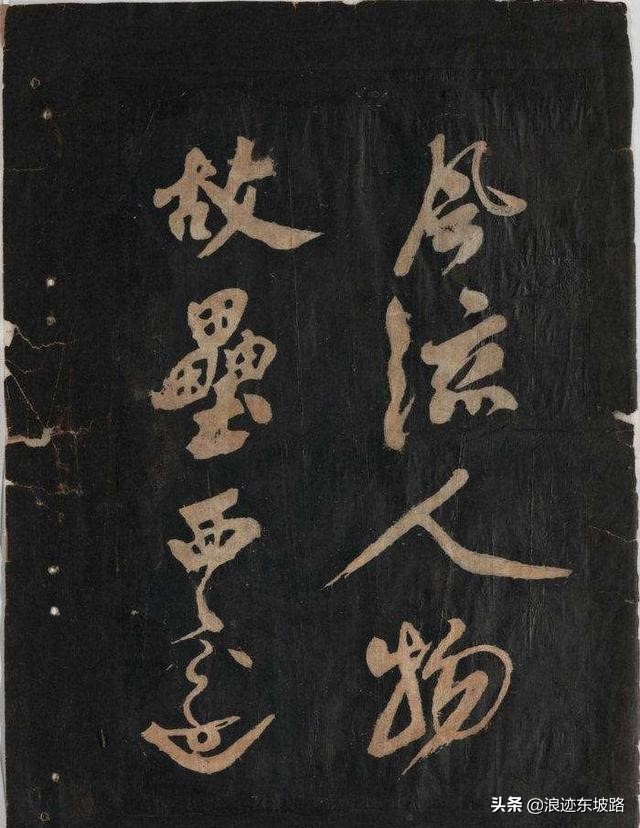 風流人物
故壘西邊
头条 @浪迹东坡路